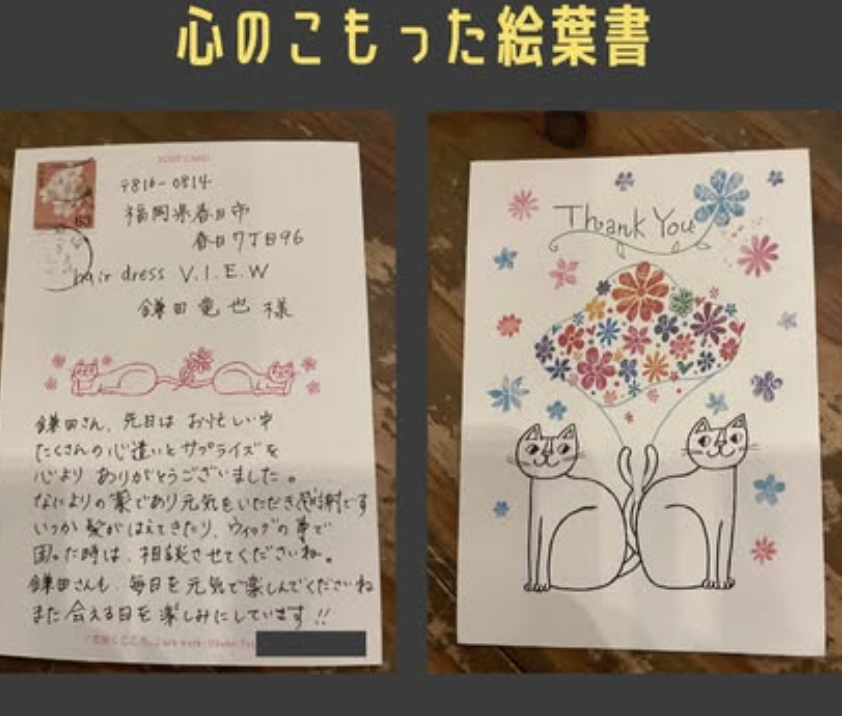 心のこもった絵葉書
POST CARD
63
〒816-0814
福岡県春日市
春日7丁目96
hair dress V.I.E.W
鎌田竜也様
鎌田さん、先日は お忙しい中
たくさんの心遣いとサプライズを
心より ありがとうございました。
なによりの薬であり元気をいただき感謝です
いつか髪がはえてきたり、ウィッグの事で
困った時は、相談させてくださいね。
鎌田さんも、毎日を元気で楽しんでくださいね
また会える日を楽しみにしています!!
Thank You